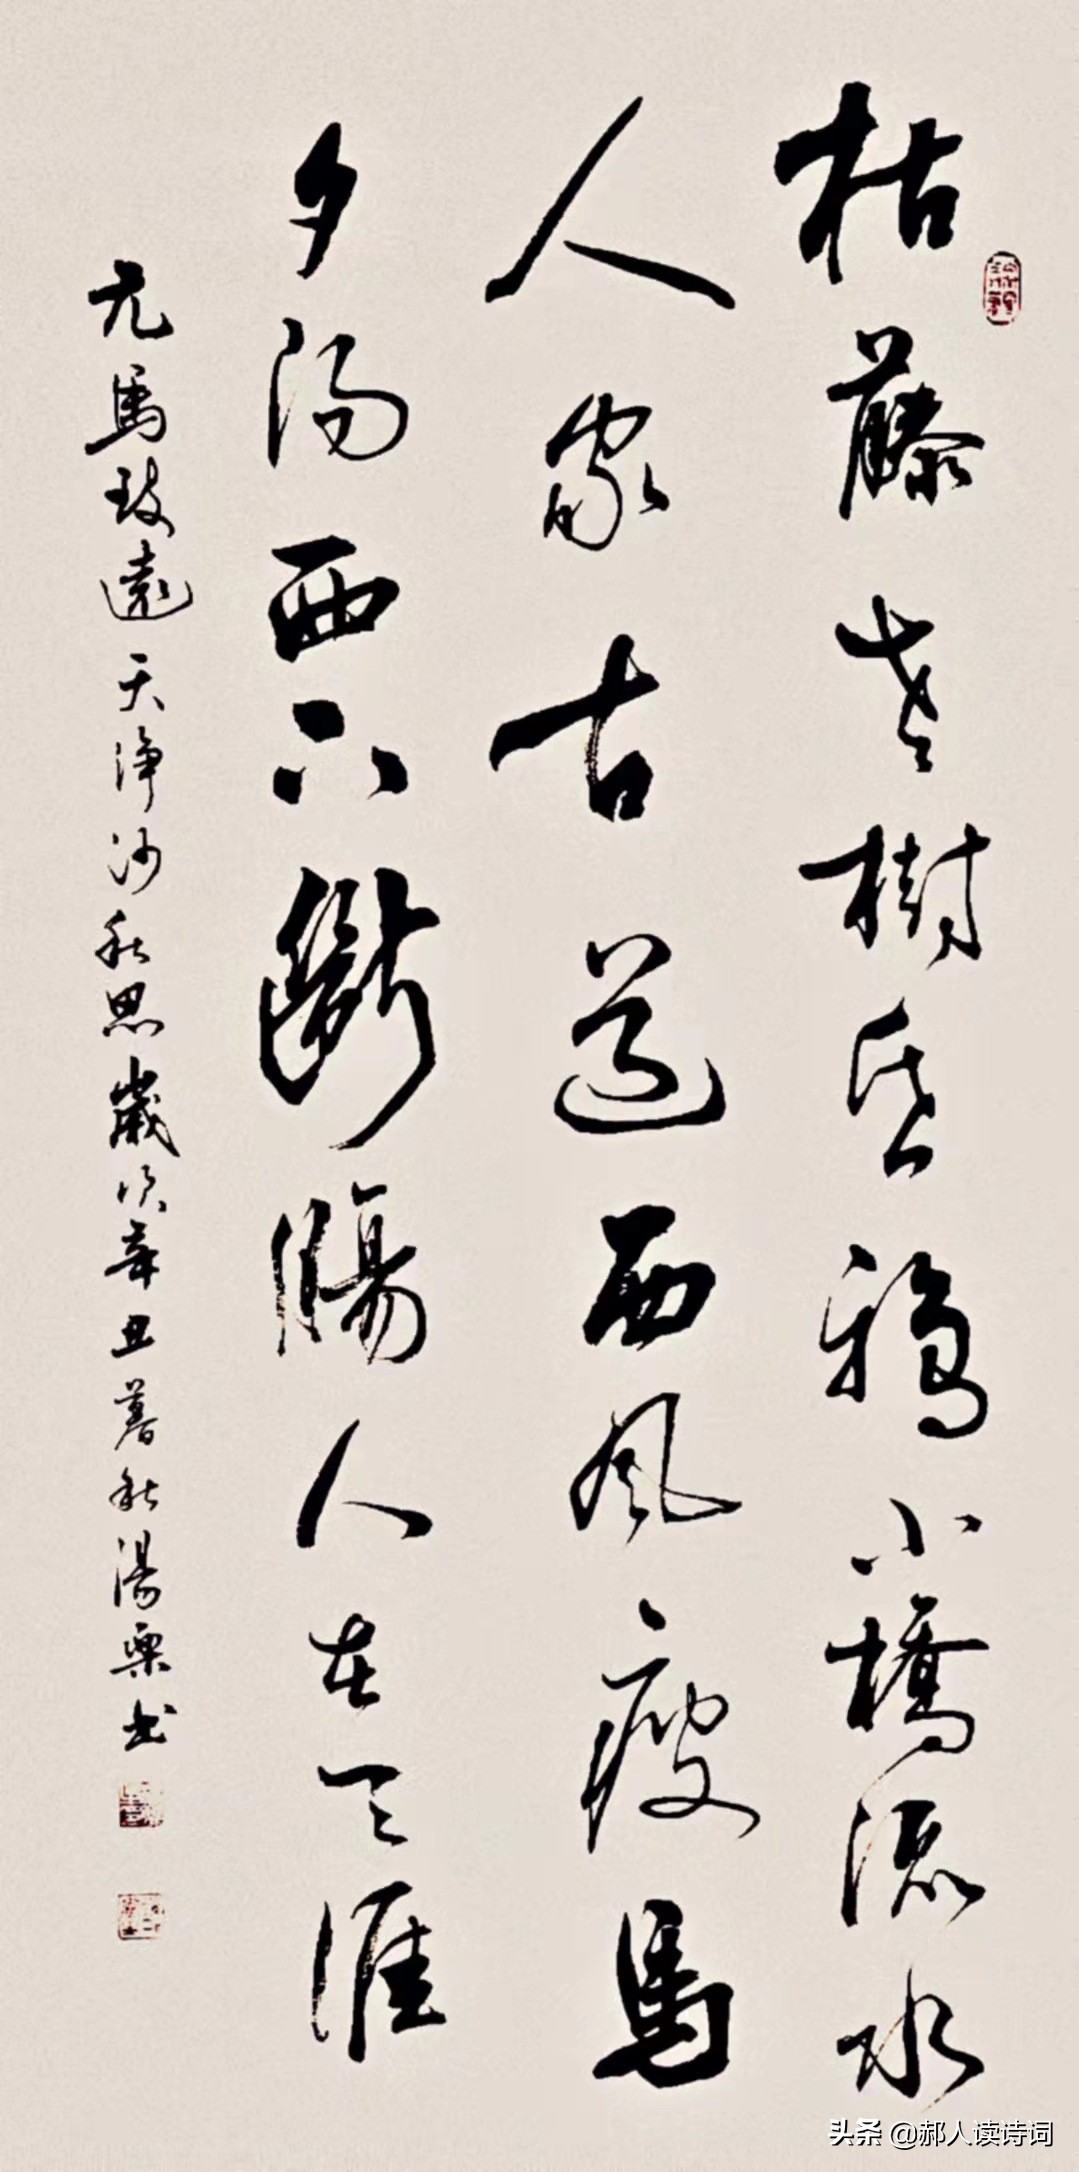 枯藤老樹昏鴉小橋流水
人家古道西風瘦馬
夕陽西下斷腸人在天涯
元馬致遠天淨沙秋思歲次辛丑暮秋湯樂书
头条 @郝人读诗词